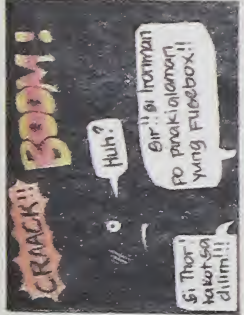 CRAACK!!
BOOM!
Huh?
Sir!! Si Ironman
po pinakialaman
yung FUSEBOX!!
Si Thor
takot sa
dilim!!!